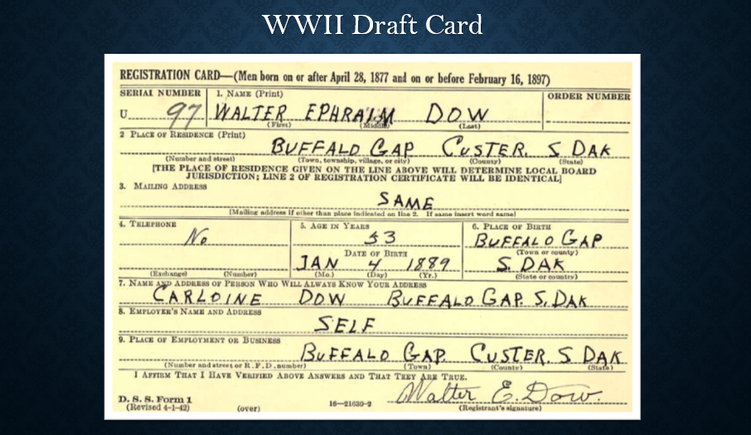 WWII Draft Card
REGISTRATION CARD—(Men born on or after April 28, 1877 and on or before February 16, 1897)
SERIAL NUMBER 1. NAME (Print) ORDER NUMBER
U 97 WALTER EPHRAIM DOW
(First) (Middle) (Last)
2 PLACE OF RESIDENCE (Print)
BUFFALO GAP CUSTER. S DAK
(Number and street) (Town, township, village, or city) (County) (State)
[THE PLACE OF RESIDENCE GIVEN ON THE LINE ABOVE WILL DETERMINE LOCAL BOARD
JURISDICTION; LINE 2 OF REGISTRATION CERTIFICATE WILL BE IDENTICAL]
3. MAILING ADDRESS
SAME
[Mailing address if other than place indicated on line 2. If same insert word same]
4. TELEPHONE 5. AGE IN YEARS 6. PLACE OF BIRTH
No 53 BUFFALO GAP
DATE OF BIRTH (Town or county)
JAN 4 1889 S. DAK
(Exchange) (Number) (Mo.) (Day) (Yr.) (State or country)
7. NAME AND ADDRESS OF PERSON WHO WILL ALWAYS KNOW YOUR ADDRESS
CARLOINE DOW BUFFALO GAP. S. DAK
8. EMPLOYER'S NAME AND ADDRESS
SELF
9. PLACE OF EMPLOYMENT OR BUSINESS
BUFFALO GAP. CUSTER. S DAK
(Number and street or R.F.D. number) (Town) (County) (State)
I AFFIRM THAT I HAVE VERIFIED ABOVE ANSWERS AND THAT THEY ARE TRUE.
D. S. S. Form 1 Walter E. Dow.
(Revised 4-1-42) (over) 16—21630-2 (Registrant's signature)